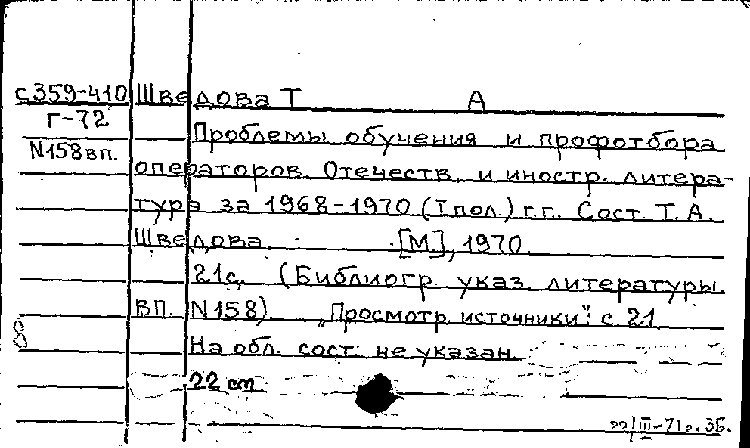 с359-410 Шведова Т А
Г-72
Проблемы обучения и профотбора
N158вп.
операторов. Отечеств. и иностр. литера-
тура за 1968-1970 (I пол.) г.г. Сост. Т.А.
Шведова. [М.], 1970.
21с. (Библиогр. указ. литературы.
ВП. N158) „Просмотр. источники": с. 21
8
На обл. сост. не указан.
22 cm
III-71г. ЗБ.